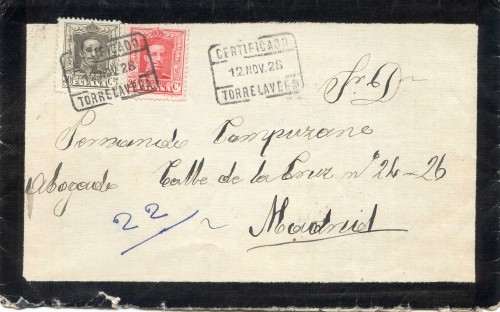 CERTIFICADO
12 NOV. 28
TORRELAVEGA
CERTIFICADO
12 NOV. 28
TORRELAVEGA
Sr. D.
Fernando Campuzano
Abogado Calle de la Cruz nº 24-26
22 Madrid